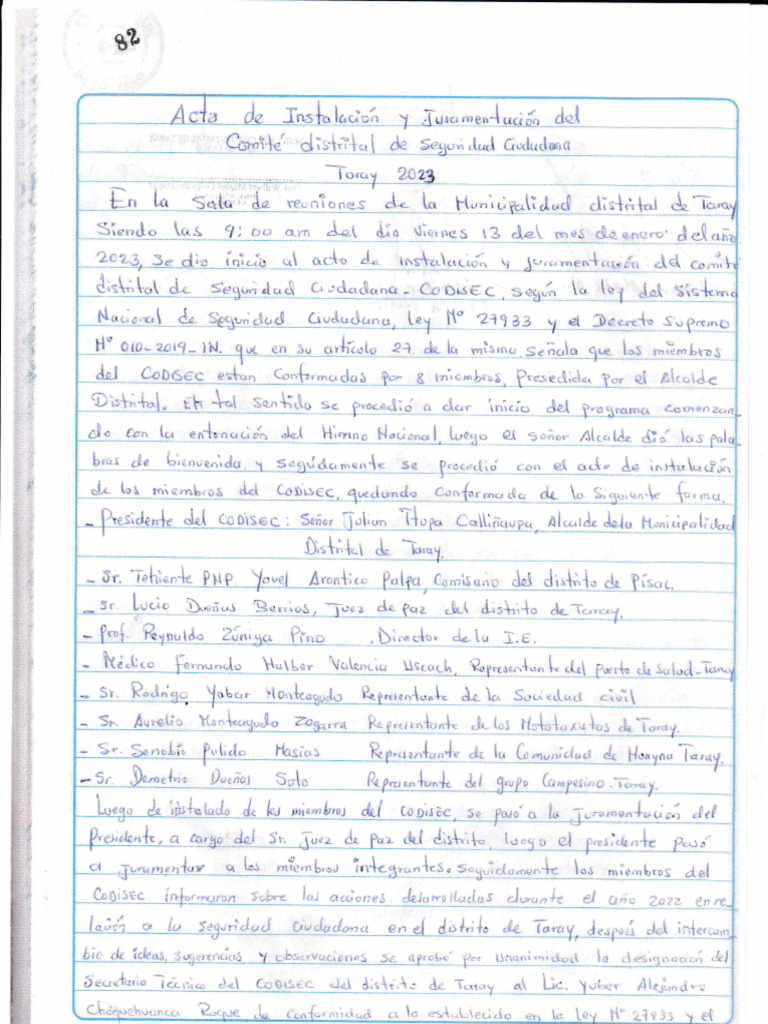 82
Acta de Instalación y Juramentación del
Comité distrital de Seguridad Ciudadana
Taray 2023
En la Sala de reuniones de la Municipalidad distrital de Taray
Siendo las 9:00 am del día Viernes 13 del mes de enero del año
2023, se dio inicio al acto de instalación y juramentación del comité
distrital de Seguridad Ciudadana - CODISEC, según la ley del Sistema
Nacional de Seguridad Ciudadana, ley N° 27933 y el Decreto Supremo
N° 010-2019-IN. que en su artículo 27. de la misma. Señala que los miembros
del CODISEC estan Conformadas por 8 miembros, Presedida por el Alcalde
Distrital. En tal sentido se procedió a dar inicio del programa comenzan-
do con la entonación del Himno Nacional, luego el señor Alcalde dió las pala-
bras de bienvenida. y seguidamente se procedió con el acto de instalación
de los miembros del CODISEC, quedando conformada de la Siguiente forma.
- Presidente del CODISEC: Señor Julian Ttupa Calliñaupa, Alcalde de la Municipalidad
Distrital de Taray.
- Sr. Teniente PNP Yovel Arontico Palpa, Comisario del distrito de Pisac.
- Sr. Lucio Dueñas Berrios, Juez de paz del distrito de Taray.
- Prof. Reynaldo Zúniga Pino , Director de la I.E.
- Médico Fernando Halber Valencia Uscach, Representante del puesto de Salud-Taray
- Sr. Rodrigo Yabar Monteagudo Representante de la Sociedad civil
- Sr. Aurelio Monteagudo Zogarra Representante de los Mototaxistas de Taray.
- Sr. Senobio Pulido Masias Representante de la Comunidad de Huayna Taray.
- Sr. Demetrio Dueñas Solo Representante del grupo Campesino-Taray.
Luego de instalado de los miembros del CODISEC, se pasó a la juramentación del
Presidente, a cargo del Sr. Juez de paz del distrito, luego el presidente pasó
a juramentar a los miembros integrantes. Seguidamente los miembros del
CODISEC informaron sobre las acciones desarrolladas durante el año 2022 en re-
lación a la seguridad ciudadana en el distrito de Taray, después del intercam-
bio de ideas, sugerencias y observaciones se aprobó por Unanimidad la designación del
Secretario Técnico del CODISEC del distrito de Taray al Lic. Yuber Alejandro
Choquehuanca Roque de Conformidad a lo establecido en la Ley N° 27933 y el